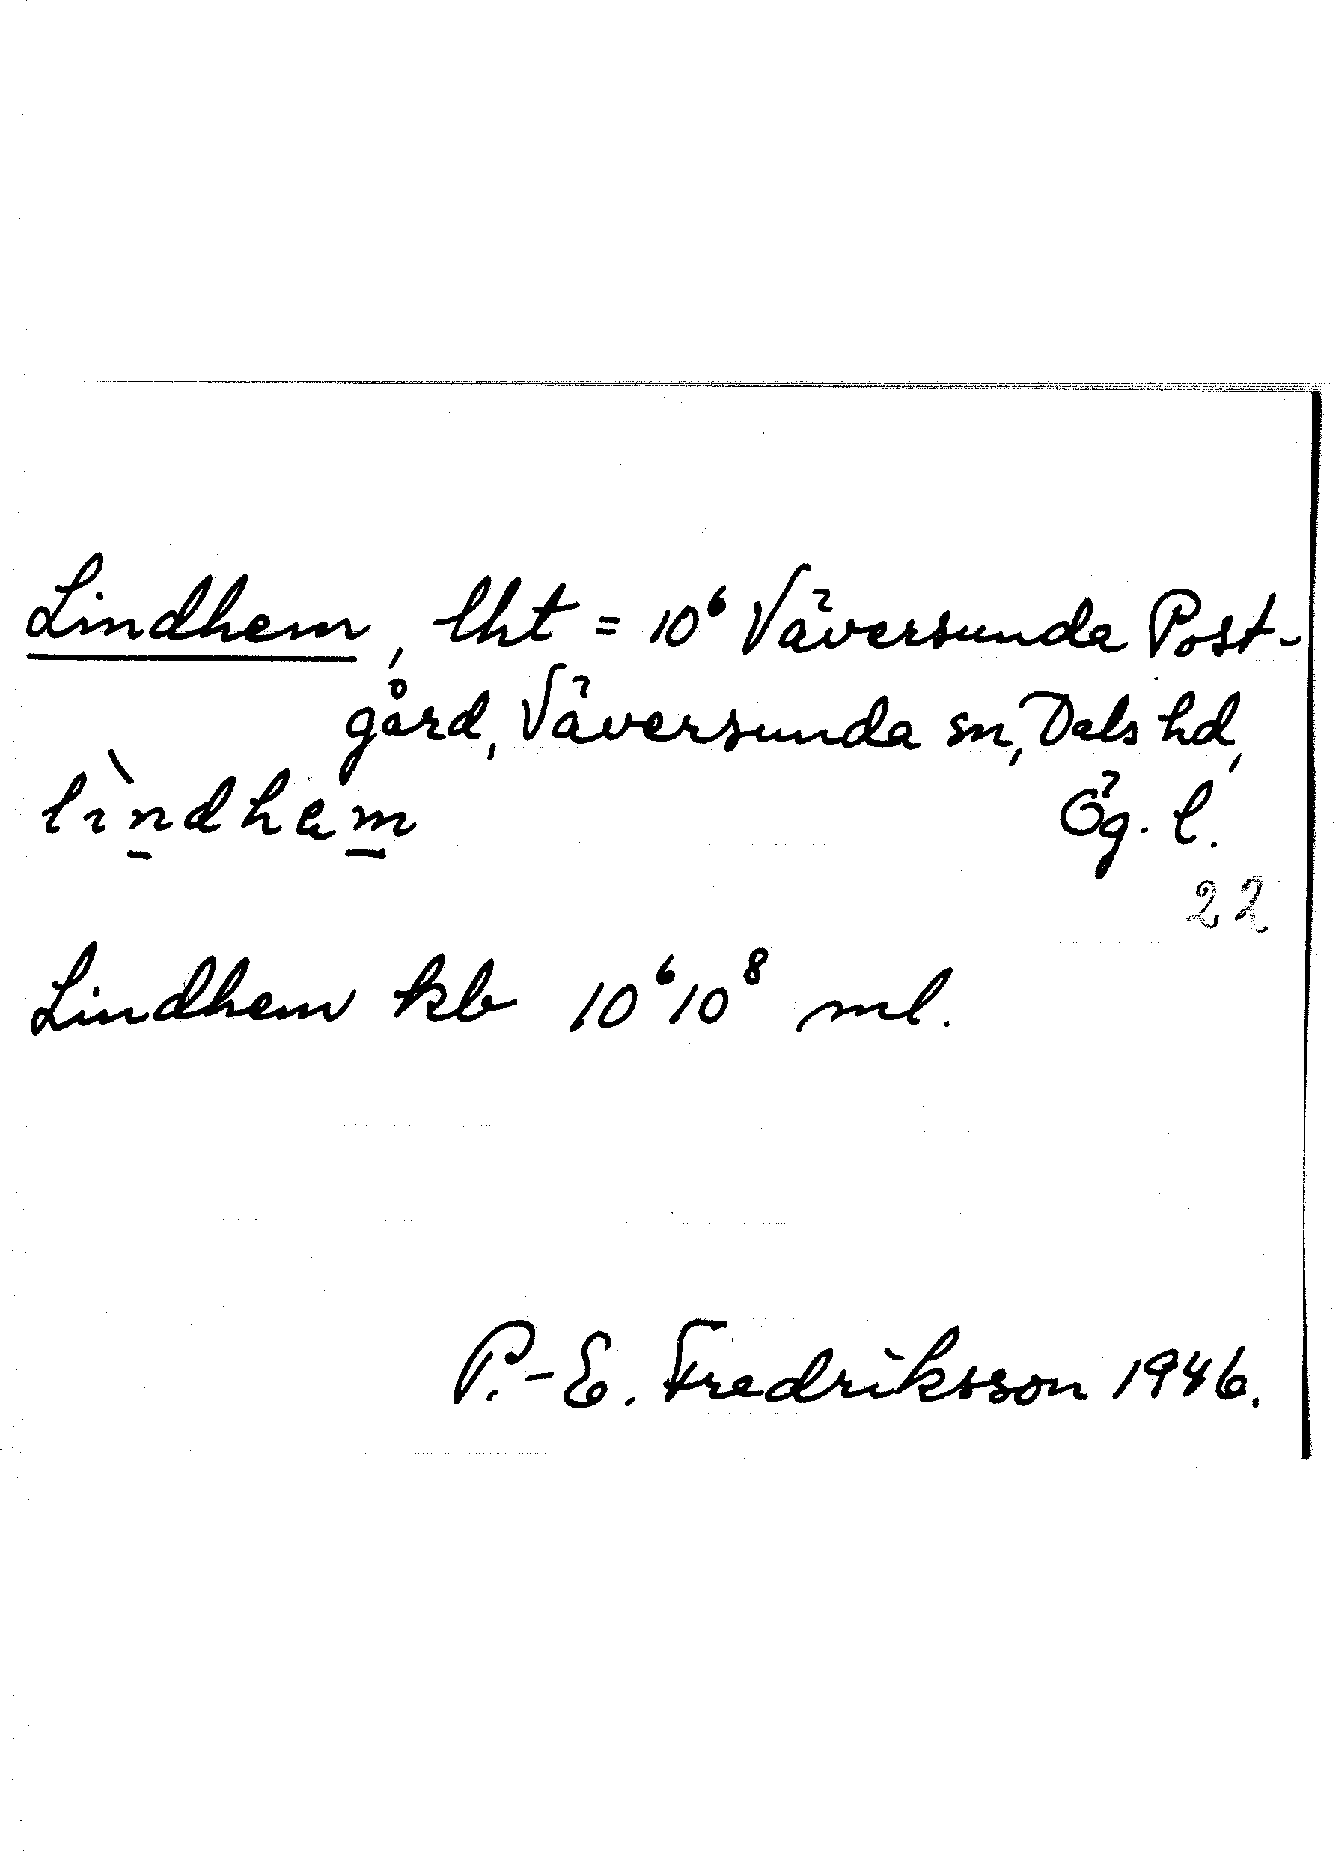 Lindhem, lht = 10⁶ Väversunda Post-
gård, Väversunda sn, Dals hd,
lìndham Ög. l.
22
Lindhem kb 10⁶10⁸ ml.
P.-E. Fredriksson 1946.